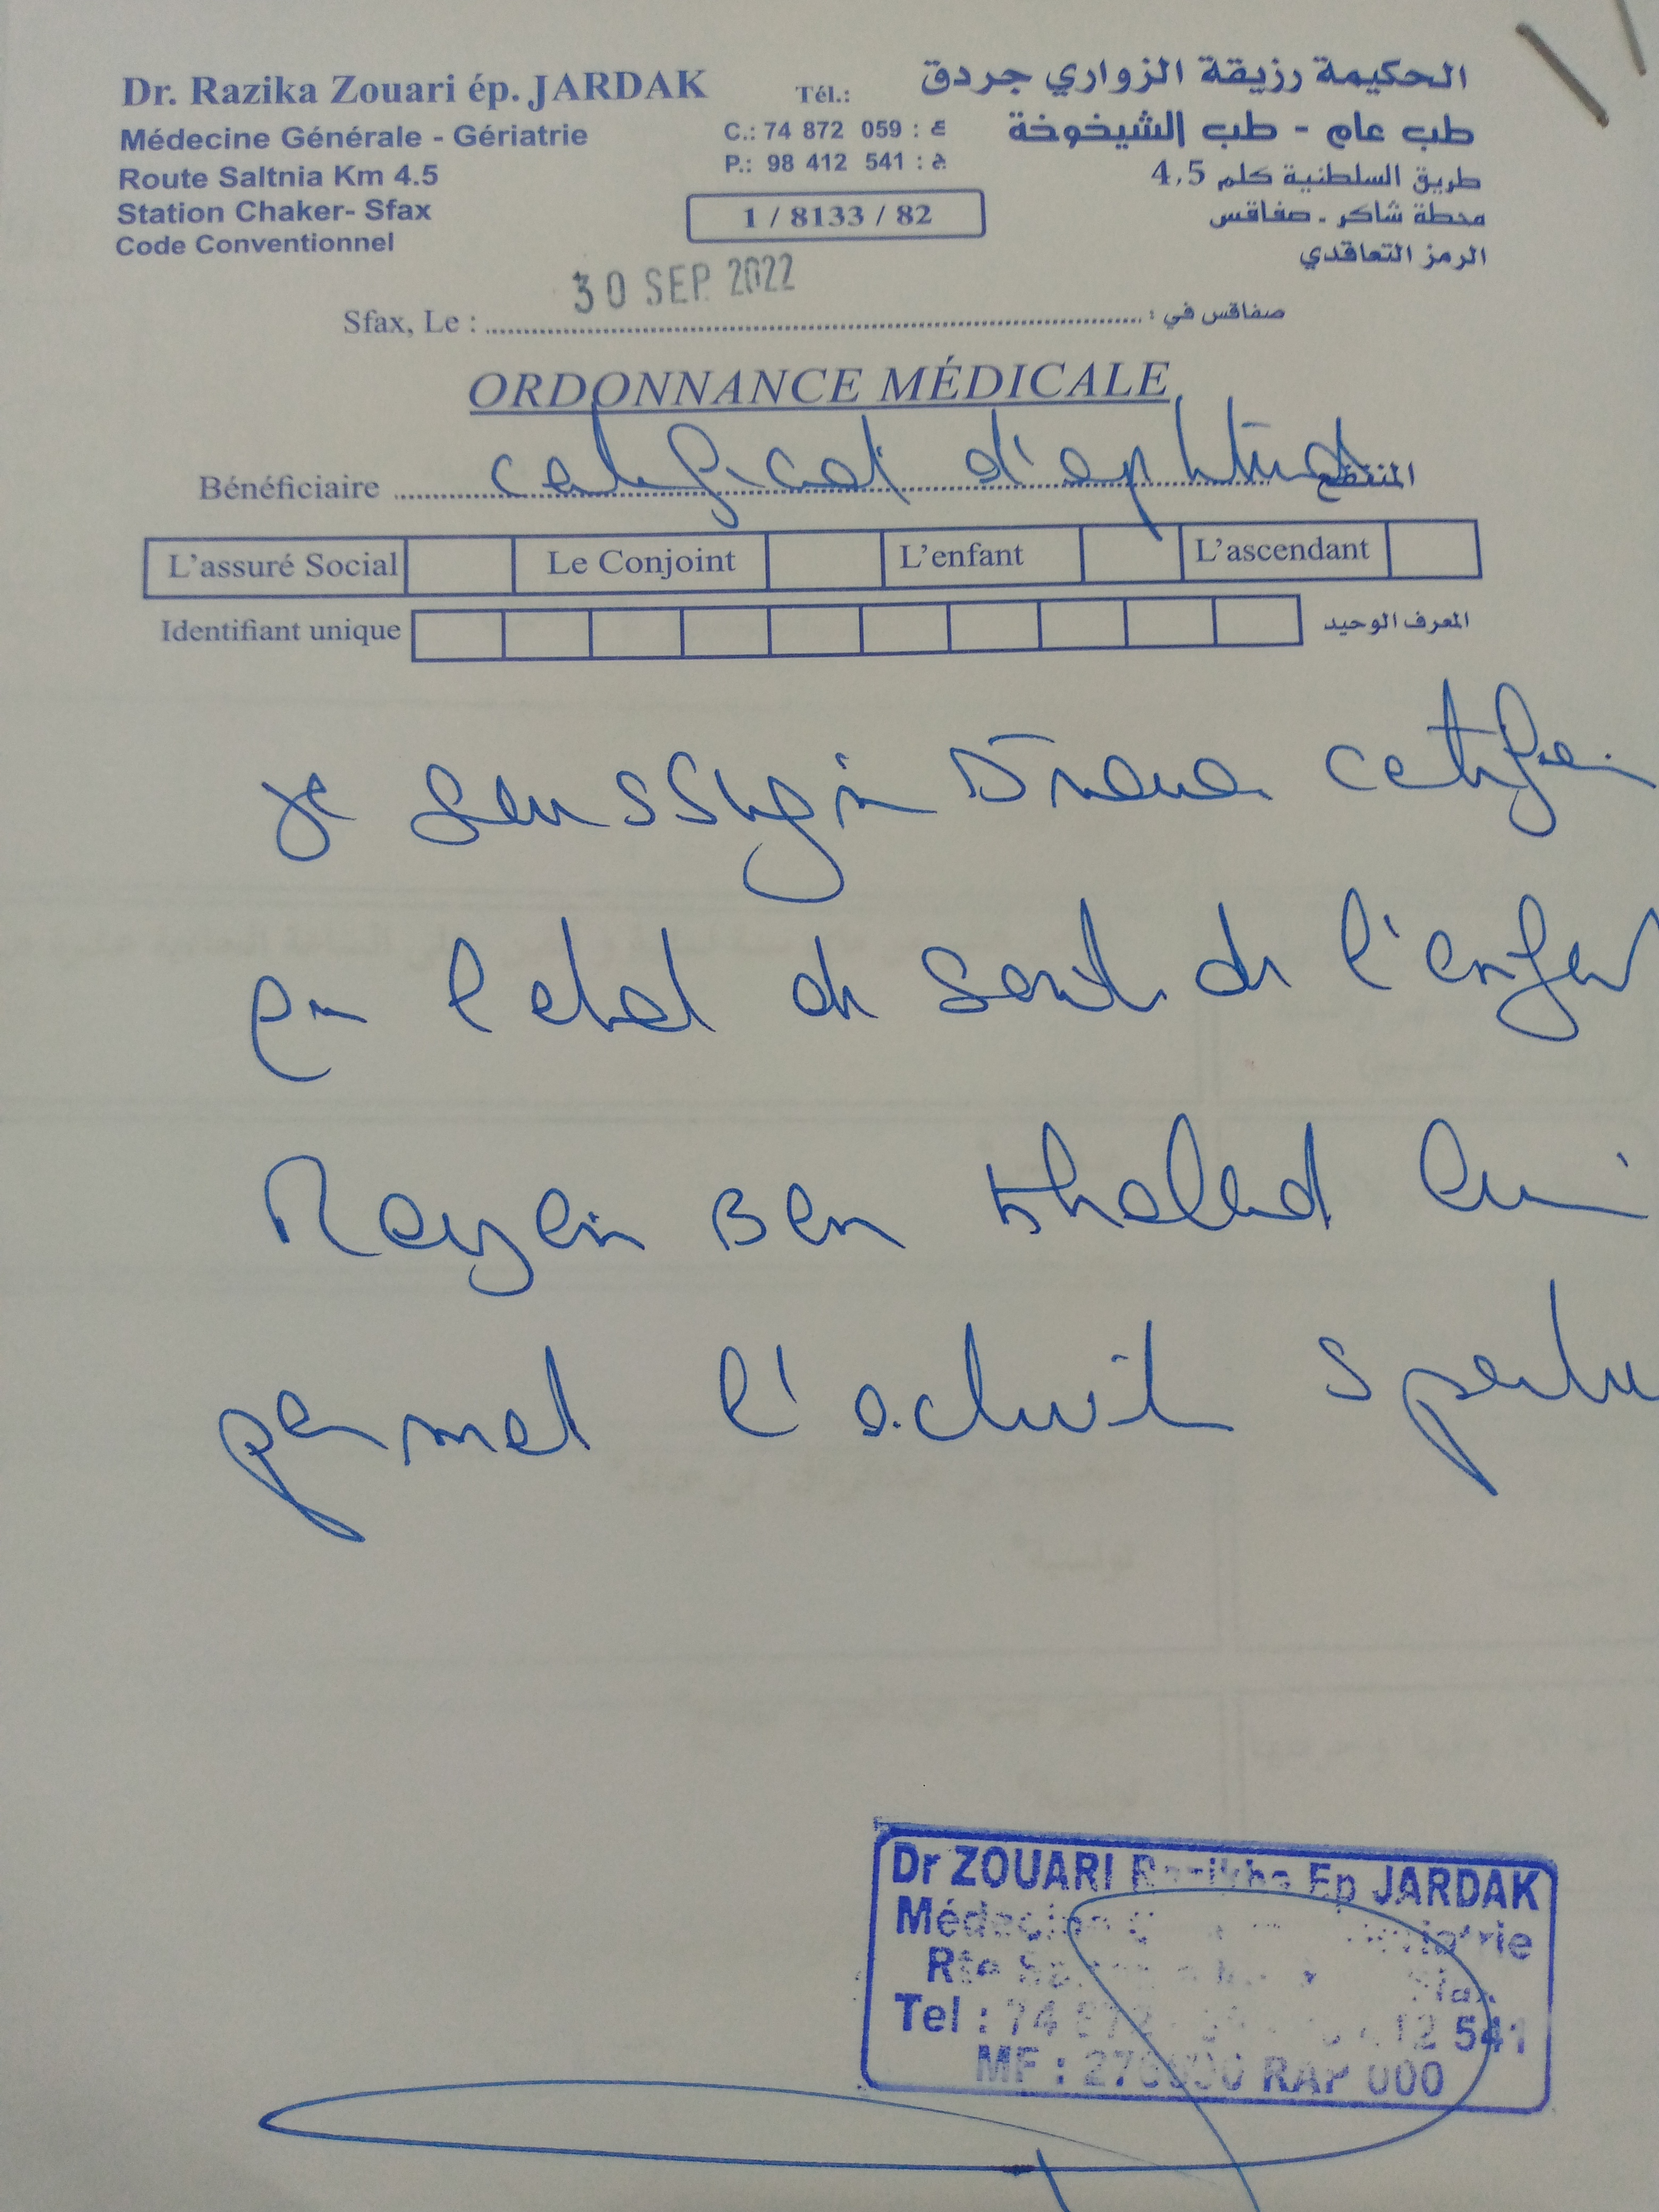 Dr. Razika Zouari ép. JARDAK
Médecine Générale - Gériatrie
Route Saltnia Km 4.5
Station Chaker- Sfax
Code Conventionnel
Tél.:
C.: 74 872 059 : ع
P.: 98 412 541 : ه
1 / 8133 / 82
الحكيمة رزيقة الزواري جردق
طب عام - طب الشيخوخة
طريق السلطنية كلم 4,5
محطة شاكر - صفاقس
الرمز التعاقدي
30 SEP. 2022
Sfax, Le : صفاقس في :
ORDONNANCE MÉDICALE
Bénéficiaire certificat d'aptitud المنتفع
L'assuré Social Le Conjoint L'enfant L'ascendant
Identifiant unique المعرف الوحيد
je certifie
l'etat de sante de l'enfant
Rayen Ben Khaled lui
permet l'activite sportiv
Dr ZOUARI Ep JARDAK
Médecine
Rte Sfax
Tel : 74 872 412 541
MF : RAP 000